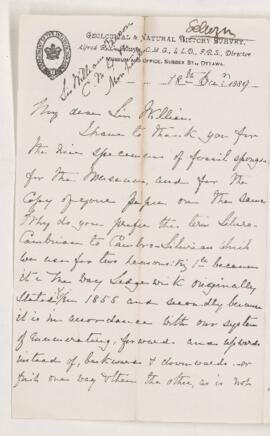 Selwyn
GEOLOGICAL & NATURAL HISTORY SURVEY.
Alfred R. C. Selwyn, C.M.G., LL.D., F.R.S., Director
MUSEUM AND OFFICE, SUSSEX ST., OTTAWA.
Sir William Dawson
C.M.G.
18th 1889
My dear Sir William.
I have to thank you for
the nice specimens of fossil sponges
for the Museum, and for the
Copy of your paper on the same
Why do you prefer the term Siluro-
Cambrian to Cambro-Silurian which
we use for two reasons viz 1st because
it is the way Sedgewick originally
stated it in 1855 and secondly because
it is in accordance with our system
of enumerating, forwards and upwards
instead of, backwards & downwards - or
first one way & then the other, as is not